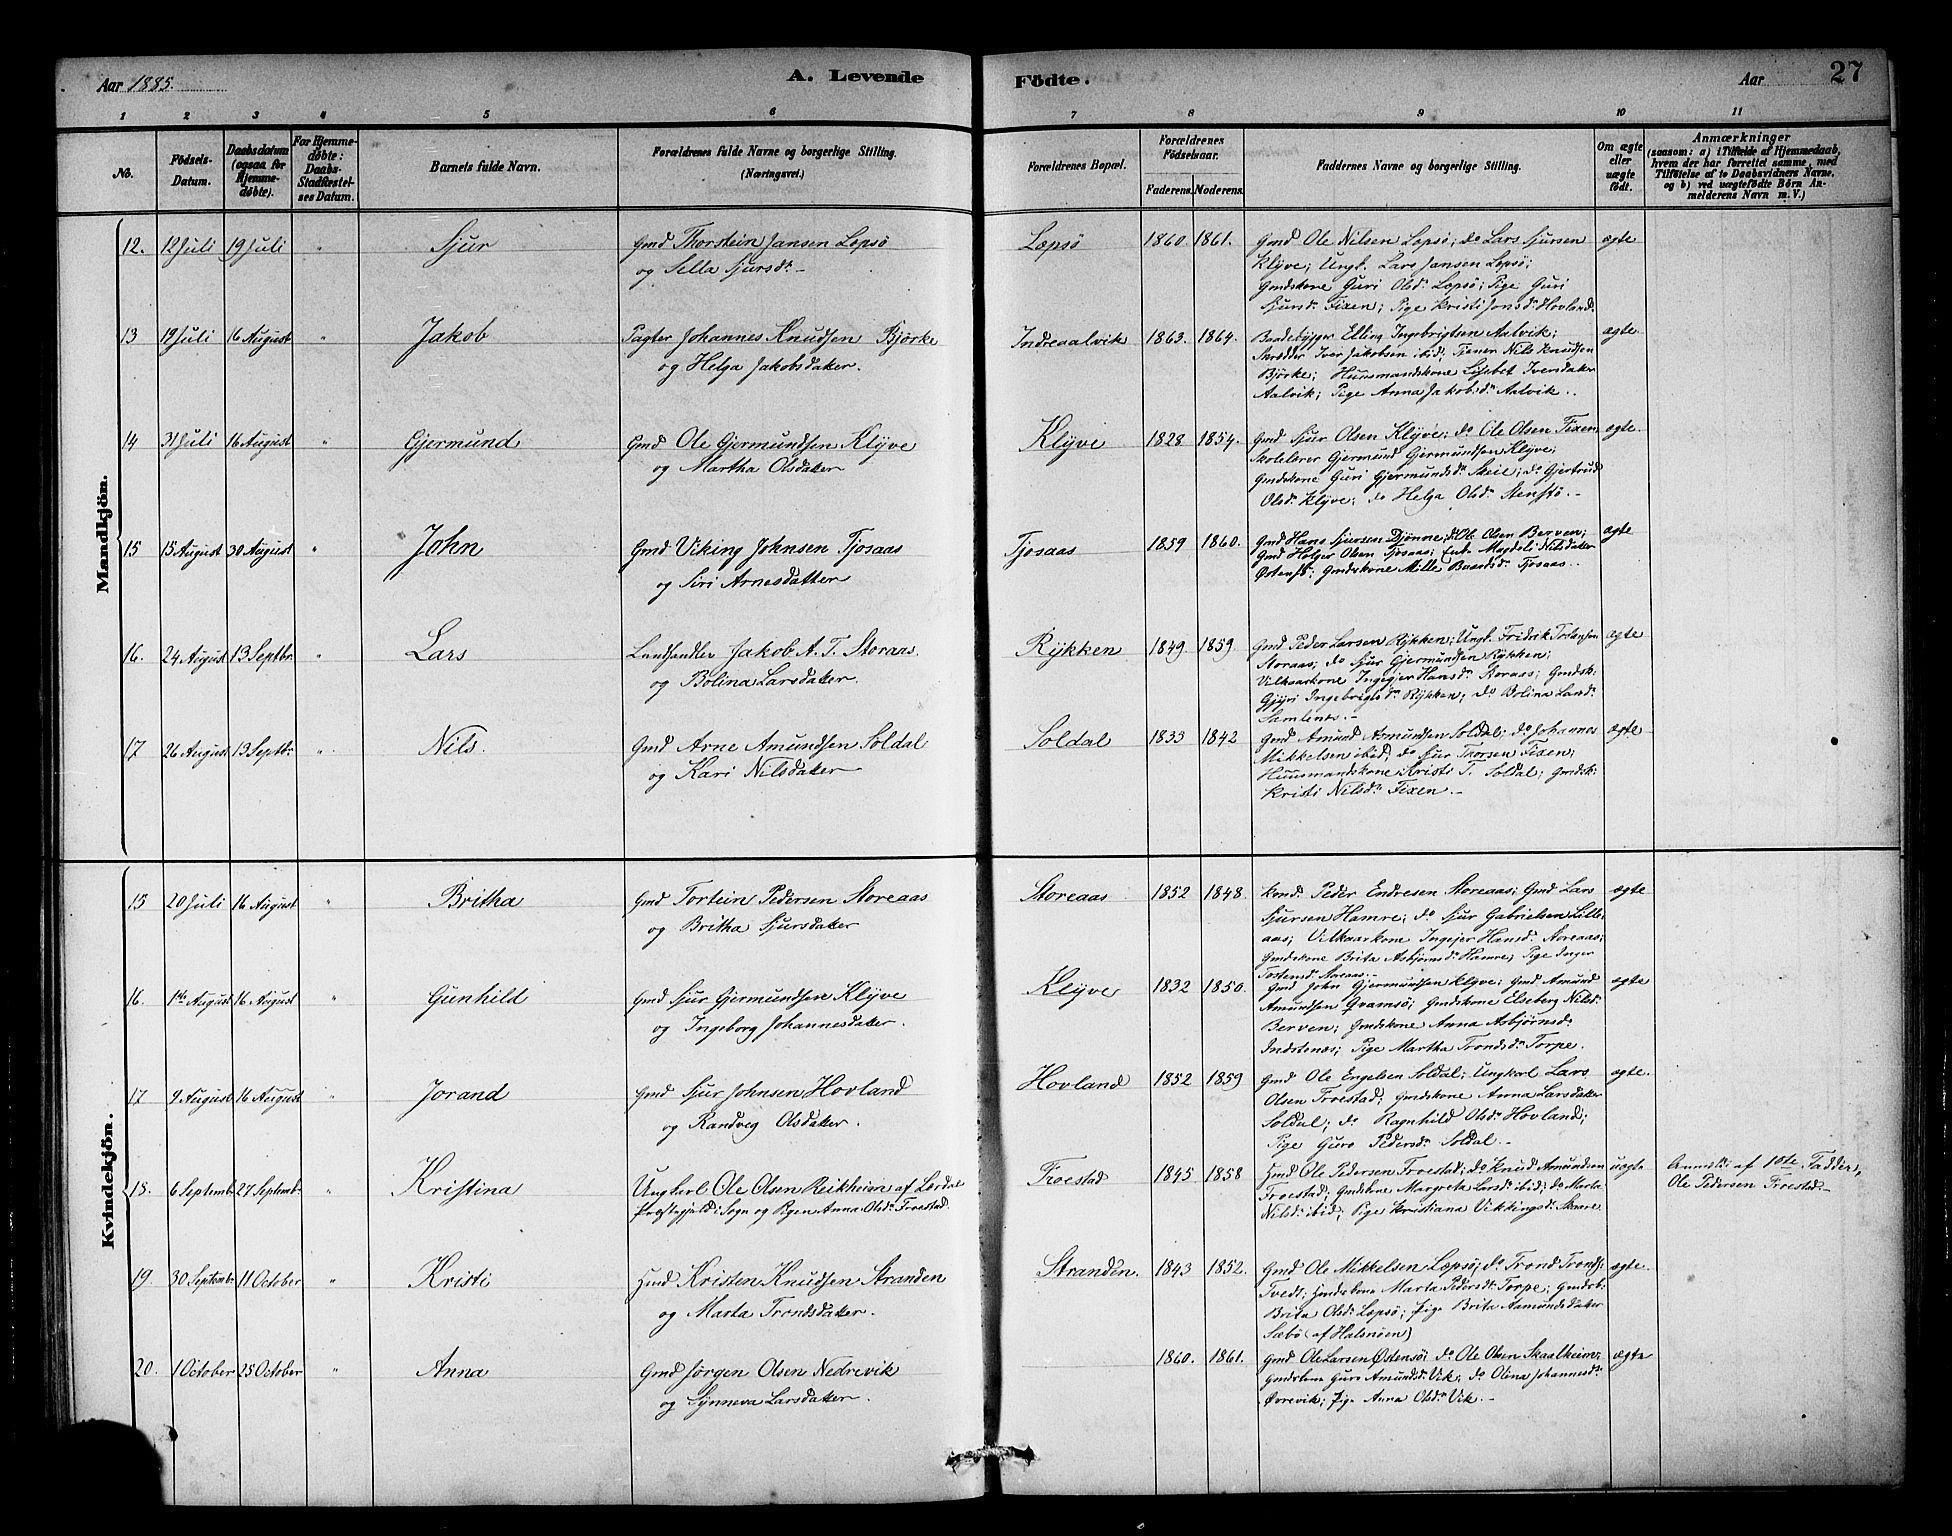 Aar 1885.
A. Levende
Födte.
Aar
27
1 2 3 4 5 6 7 8 9 10 11
No.
Födsels-
Datum.
Daabsdatum
(ogsaa for
Hjemme-
döbte).
For Hjemme-
döbte:
Daabs-
Stadfæstel-
ses Datum.
Barnets fulde Navn.
Forældrenes fulde Navne og borgerlige Stilling.
(Næringsvei.)
Forældrenes Bopæl.
Forældrenes
Födselsaar.
Faderens. Moderens.
Faddernes Navne og borgerlige Stilling.
Om ægte
eller
uægte
födt.
Anmærkninger
(saasom: a) i Tilfælde af Hjemmedaab,
hvem der har forrettet samme, med
Tilföielse af to Daabsvidners Navne,
og b) ved uægtefödte Börn An-
melderens Navn m. V.)
Mandkjön.
12. 12 Juli 19 Juli " Sjur
Gmd Thorstein Jansen Lepsö
og Sella Sjursdr.-
Læpsö 1860. 1861.
Gmd Ole Nilsen Lepsö; do Lars Sjursen
Klÿve; Ungk. Lars Jansen Lepsö;
Gmdskone Guri Olsdr Lepsö; Pige Guri
Sjursdr Fixen; Pige Kristi Jonsdr Hovland.
ægte
13 19 Juli 16 August " Jakob
Pagter Johannes Knudsen Björke
og Helga Jakobsdatter.
Indreaalvik 1863. 1864.
Baadebÿgger Elling Ingebrigtsen Aalvik;
Skrædder Iver Jakobsen ibid; Tjener Nils Knudsen
Björke; Huusmandskone Lisbet Iversdatter
Aalvik; Pige Anna Jakobsdr Aalvik.
ægte
14 31 Juli 16 August " Gjermund
Gmd Ole Gjermundsen Klÿve
og Martha Olsdatter
Klÿve 1828 1854.
Gmd Sjur Olsen Klÿve; do Ole Olsen Fixen
Skolelærer Gjermund Gjermundsen Klÿve;
Gmdskone Guri Gjermundsdr Skeie; do Gjertrud
Olsdr Klÿve; do Helga Olsdr Stenstö.-
ægte.
15 15 August 30 August " John
Gmd Viking Johnsen Tjosaas
og Siri Arnesdatter
Tjosaas 1859 1860.
Gmd Hans Sjursen Djönne; do Ole Olsen Berven;
Gmd Holger Olsen Tjosaas; Enk. Magdeli Nilsdatter
Östensö; Gmdskone Mille Baardsdr Tjosaas.
ægte
16. 24 August 13 Septbr. " Lars
Landhandler Jakob A. T. Storaas
og Bolina Larsdatter.
Rÿkken 1849 1859
Gmd Peder Larsen Rÿkken; Ungk. Fridrik Tostensen
Storaas; do Sjur Gjermundsen Rÿkken;
Vilkaarkone Ingejer Hansdr Storaas; Gmdsk.
Gjÿri Ingebrigtsdr Rÿkken; do Bolina Larsdr
Samlenes.-
ægte
17 26 August 13 Septbr " Nils.
Gmd Arne Amundsen Soldal
og Kari Nilsdatter
Soldal 1833 1842
Gmd Amund Asmundsen Soldal; do Johannes
Mikkelsen ibid; do Sjur Thorsen Fixen;
Huusmandskone Kristi T. Soldal; Gmdsk.
Kristi Nilsdr Fixen.-
ægte
Kvindekjön.
15 20 Juli 16 August " Britha
Gmd Tortein Pedersen Storeaas
og Britha Sjursdatter
Storeaas 1852 1848.
Kmd. Peder Endresen Storeaas; Gmd Lars
Sjursen Hamre; do Sjur Gabrielsen Lille-
aas; Vilkaarkone Ingejer Hansdr Storeaas;
Gmdskone Brita Asbjörnsdr Hamre; Pige Inger
Tostensdr Storeaas.-
ægte
16. 1ste August 16 August " Gunhild
Gmd Sjur Gjermundsen Klÿve
og Ingeborg Johannesdatter.
Klÿve 1832 1850.
Gmd John Gjermundsen Klÿve; Gmd Amund
Amundsen Qvamsö; Gmdskone Elseberg Nilsdr
Berven; Gmdskone Anna Asbjörnsdr
Indstenæs; Pige Martha Trondsdr Torpe.
ægte
17 9 August 16 August " Jorand
Gmd Sjur Johnsen Hovland
og Randveg Olsdatter.
Hovland 1852 1859
Gmd Ole Engelsen Soldal; Ungkarl Lars
Olsen Froestad; Gmdskone Anna Larsdatter
Soldal; do Ragnhild Olsdr Hovland;
Pige Guro Pedersdr Soldal.-
ægte.
18. 6 Septemb. 27 Septemb. " Kristina
Ungkarl Ole Olsen Reikheim af Lærdal
Præstegjeld i Sogn og Pigen Anna Olsdr Froestad.
Froestad 1845 1858
Hmd Ole Pedersen Froestad; do Knud Amundsen
Froestad; Gmdskone Margreta Larsdr ibid; do Marta
Nilsdr ibid; Pige Kristiana Vikingsdr Skaare
uægte
Anmeldt af 1ste Fadder,
Ole Pedersen Froestad.-
19. 30 Septembr 11 October " Kristi
Hmd Kristen Knudsen Stranden
og Marta Trondsdatter.
Stranden. 1843 1852.
Gmd Ole Mikkelsen Lepsö; do Trond Tronds.
Tvedt; Gmdskone Marta Pedersdr Torpe; Gmdsk.
Brita Olsdr Læpsö; Pige Brita Aamundsdatter
Sæbö (af Halsnöen)
ægte.
20. 1 October 25 October " Anna
Gmd Jörgen Olsen Nedrevik
og Sÿnneva Larsdatter.
1860. 1861.
Gmd Ole Larsen Östensö; do Ole Olsen Skaalheim;
Gmdskone Guro Amundsdr Vik; do Olina Johannesdr
Övrevik; Pige Anna Olsdr Vik.-
ægte